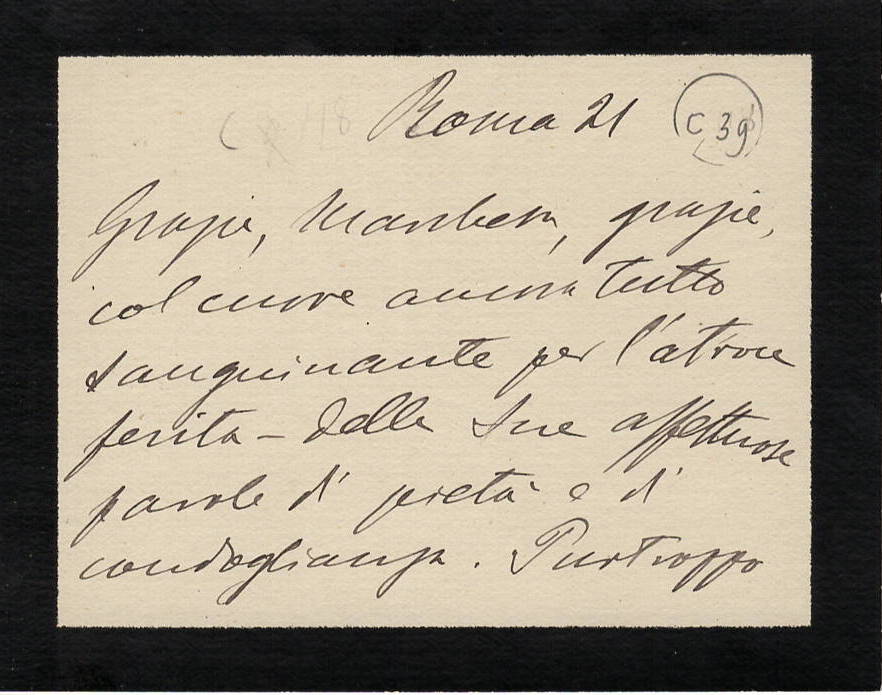 Roma 21
C 39
Grazie, grazie,
col cuore ancora tutto
sanguinante per l'atroce
ferita – delle Sue affettuose
parole di pietà e di
condoglianza. Purtroppo